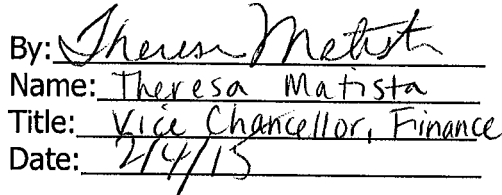 By: Theresa Matista
Name: Theresa Matista
Title: Vice Chancellor, Finance
Date: 2/4/15